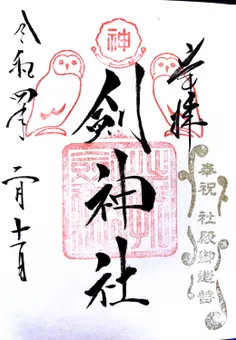 奉拝
奉祝 社殿御造営
神
劔神社
令和四年
二月十一日